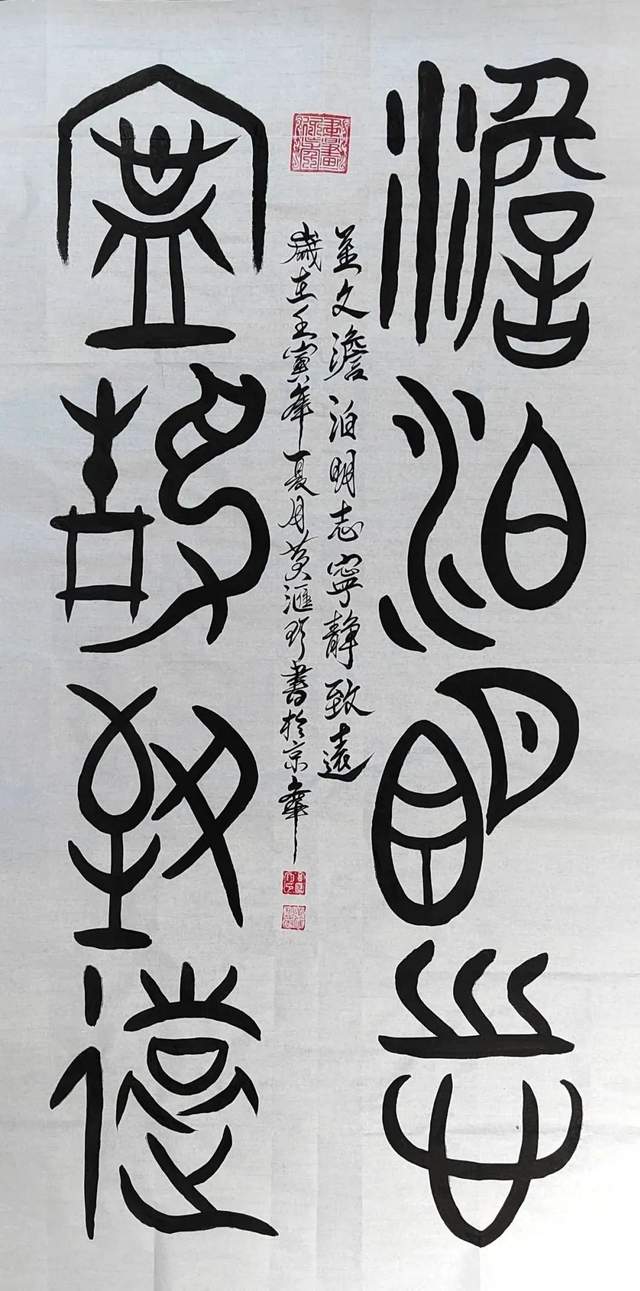 澹泊明志
寧靜致遠
釜文澹泊明志寧靜致遠
歲在壬寅年夏月黃滙珍書於京華